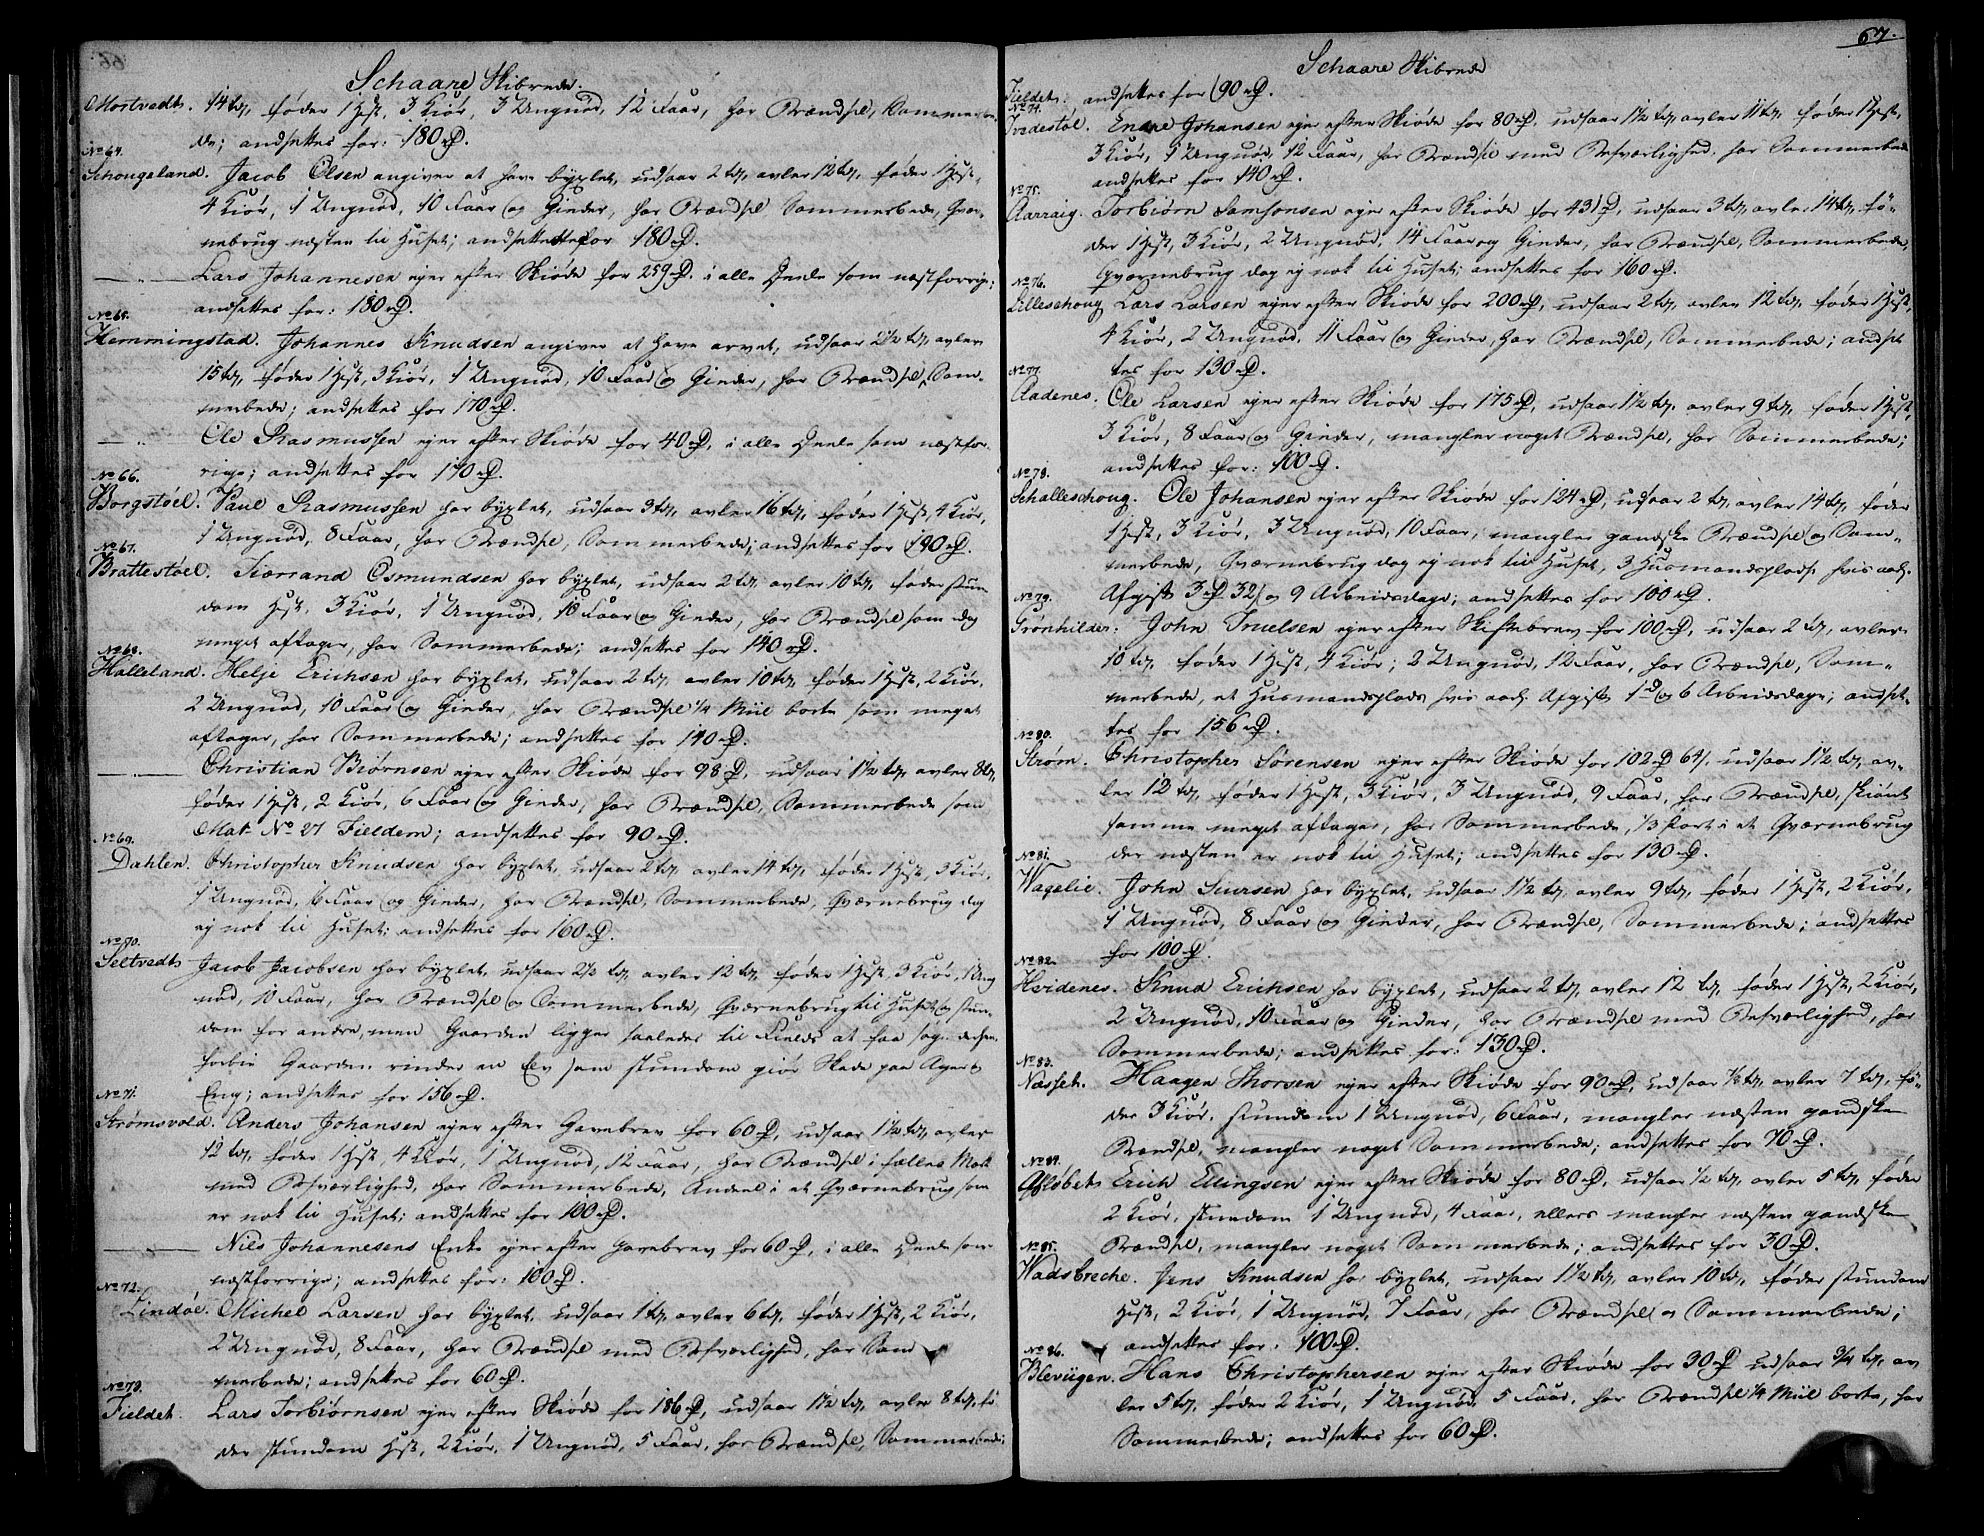 Schaare Skibrede.
Mortvedt. 14 td, føder 1 Hest, 3 Kiør, 3 Ungnød, 12 Faar, har Brændsel, Sommerbe-
de; andsettes for: 180 rD.
No 64.
Schougeland. Jacob Olsen angiver at have byxlet, udsaar 2 td, avler 12 td, føder 1 Hest,
4 Kiør, 1 Ungnød, 10 Faar og Gieder, har Brændsel Sommerbede, Qvær-
nebrug næsten til Huset; andsettes for 180 rD.
— " — Lars Johannesen ejer efter Skiøde for 259 D. i alle Deele som næstforrige;
andsettes for: 180 rD.
No 65.
Hemmingstad. Johannes Knudsen angiver at have arvet, udsaar 2 1/2 td, avler
15 td, føder 1 Hest, 3 Kiør, 1 Ungnød, 10 Faar og Gieder, har Brændsel, Som-
merbede; andsettes for 170 rD.
— " Ole Rasmussen ejer efter Skiøde for 40 rD, i alle Deele som næstfor-
rige; andsettes for 170 rD.
No 66.
Borgstøel. Paul Rasmussen har byxlet, udsaar 3 td, avler 16 td, føder 1 Hest, 4 Kiør,
1 Ungnød, 8 Faar, har Brændsel, Sommerbede; andsettes for 190 rD.
No 67.
Brattestøel. Tiærrand Osmundsen har byxlet, udsaar 2 td, avler 10 td, føder stun-
dom Hest, 3 Kiør, 1 Ungnød, 10 Faar og Gieder, har Brændsel som dog
meget aftager, har Sommerbede; andsettes for 140 rD.
No 68.
Halleland. Helje Erichsen har byxlet, udsaar 2 td, avler 10 td, føder 1 Hest, 2 Kiør,
2 Ungnød, 10 Faar og Gieder, har Brændsel 1/4 Miil borte som meget
aftager, har Sommerbede; andsettes for 140 rD.
— " — Christian Biørnsen ejer efter Skiøde for 98 D, udsaar 1 1/2 td, avler 8 td,
føder 1 Hest, 2 Kiør, 6 Faar og Gieder, har Brændsel, Sommerbede som
Mat. No 27 Fieldem; andsettes for 90 rD.
No 69.
Dahlen. Christopher Knudsen har byxlet, udsaar 2 td, avler 14 td, føder 1 Hest, 3 Kiør,
1 Ungnød, 6 Faar og Gieder, har Brændsel, Sommerbede, Qværnebrug dog
ej nok til Huset; andsettes for 160 rD.
No 70.
Seltvedt. Jacob Jacobsen har byxlet, udsaar 2 1/2 td, avler 12 td, føder 1 Hest, 3 Kiør, 1 Ung
nød, 10 Faar, har Brændsel og Sommerbede, Qværnebrug til Huset og stun-
dom for andre, men Gaarden ligger saaledes til Fields at
forbie Gaarden rinder en Elv som stundom giør Skade paa Ager &
Eng; andsettes for 156 rD.
No 71.
Strømsvold. Anders Johansen ejer efter Gavebrev for 60 D, udsaar 1 1/2 td, avler
12 td, føder 1 Hest, 4 Kiør, 1 Ungnød, 12 Faar, har Brændsel i fælles Mark
med Besværlighed, har Sommerbede, Andeel i et Qværnebrug som
er nok til Huset; andsettes for 100 rD.
— " — Niels Johannesens Enke ejer efter Gavebrev for 60 D, i alle Deele som
næstforrige; andsettes for: 100 D.
No 72.
Lindøe. Michel Larsen har byxlet, udsaar 1 td, avler 6 td, føder 1 Hest, 2 Kiør,
2 Ungnød, 8 Faar, har Brændsel med Besværlighed, har Som
merbede; andsettes for 60 rD.
No 73.
Fieldet. Lars Torbiørnsen ejer efter Skiøde for 186 rD, udsaar 1 1/2 td, avler 8 td, fø
der stundom Hest, 2 Kiør, 1 Ungnød, 5 Faar, har Brændsel, Sommerbede;
67.
Schaare Skibrede
Fieldet. andsettes for 90 rD.
No 74.
Tvedestøl. Enare Johansen ejer efter Skiøde for 80 rD. udsaar 1 1/2 td, avler 11 td, føder 1 Hest,
3 Kiør, 1 Ungnød, 12 Faar, har Brændsel med Besværlighed, har Sommerbede
andsettes for 140 rD.
No 75.
Aarraig. Torbiørn Samsonsen ejer efter Skiøde for 431 D, udsaar 3 td, avler 14 td, fø-
der 1 Hest, 3 Kiør, 2 Ungnød, 14 Faar og Gieder, har Brændsel, Sommerbede,
Qværnebrug dog ej nok til Huset; andsettes for 160 rD.
No 76.
Lilleschoug Lars Larsen ejer efter Skiøde for 200 rD, udsaar 2 td, avler 12 td, føder 1 Hest,
4 Kiør, 2 Ungnød, 11 Faar og Gieder, har Brændsel, Sommerbede; andset
tes for 130 rD.
No 77.
Aadenes. Ole Larsen ejer efter Skiøde for 175 D, udsaar 1 1/2 td, avler 9 td, føder 1 Hest,
3 Kiør, 8 Faar og Gieder, mangler noget Brændsel, har Sommerbede;
andsettes for: 100 D.
No 78.
Schalleschoug. Ole Johansen ejer efter Skiøde for 124 rD, udsaar 2 td, avler 14 td, føder
1 Hest, 3 Kiør, 3 Ungnød, 10 Faar, mangler gandske Brændsel og Som-
merbede, Qværnebrug dog ej nok til Huset, 3 Husmandspladse hvis aarl.
Afgift 3 rD 32 s og 9 Arbeidsdage; andsettes for 100 rD.
No 79.
Grønhilder. John Truelsen ejer efter Skiftebrev for 100 D, udsaar 2 td, avler
10 td, føder 1 Hest, 4 Kiør; 2 Ungnød, 12 Faar, har Brændsel, Som-
merbede, et Husmandsplads hvis aarl. Afgift 1 D og 6 Arbeidsdage; andset-
tes for 156 rD.
No 80.
Strøm. Christopher Sørensen ejer efter Skiøde for 102 D 64 s, udsaar 1 1/2 td, av-
ler 12 td, føder 1 Hest, 3 Kiør, 3 Ungnød, 9 Faar, har Brændsel, skiønt
samme meget aftager, har Sommerbede, 1/3 Part i et Qværnebrug
der næsten er nok til Huset; andsettes for 130 rD.
No 81.
Wagelie. John Siursen har byxlet, udsaar 1 1/2 td, avler 9 td, føder 1 Hest, 2 Kiør,
1 Ungnød, 8 Faar og Gieder, har Brændsel, Sommerbede; andsettes
for 100 rD.
No 82.
Hvidenes. Knud Erichsen har byxlet, udsaar 2 td, avler 12 td, føder 1 Hest, 2 Kiør,
2 Ungnød, 10 Faar og Gieder, har Brændsel med Besværlighed, har
Sommerbede; andsettes for: 130 rD.
No 83.
Næsset. Haagen Thorsen ejer efter Skiøde for 90 rD, udsaar 1/2 td, avler 7 td, fø-
der 3 Kiør, stundom 1 Ungnød, 6 Faar, mangler næsten gandske
Brændsel, mangler noget Sommerbede; andsettes for 70 rD.
No 84.
Afløbet. Erich Ellingsen ejer efter Skiøde for 80 D, udsaar 1/2 td, avler 5 td, føder
2 Kiør, stundom 1 Ungnød, 4 Faar, ellers mangler næsten gandske
Brændsel, mangler noget Sommerbede; andsettes for 30 rD.
No 85.
Wadsbreche. Jens Knudsen har byxlet, udsaar 1 1/2 td, avler 10 td, føder stundom
Hest, 2 Kiør, 1 Ungnød, 7 Faar, har Brændsel og Sommerbede;
andsettes for: 100 rD.
No 86.
Blevügen. Hans Christophersen ejer efter Skiøde for 30 D udsaar 3/4 td, av
ler 5 td, føder 2 Kiør, 1 Ungnød, 5 Faar, har Brændsel 1/4 Miil borte, har
Sommerbede; andsettes for 60 rD.